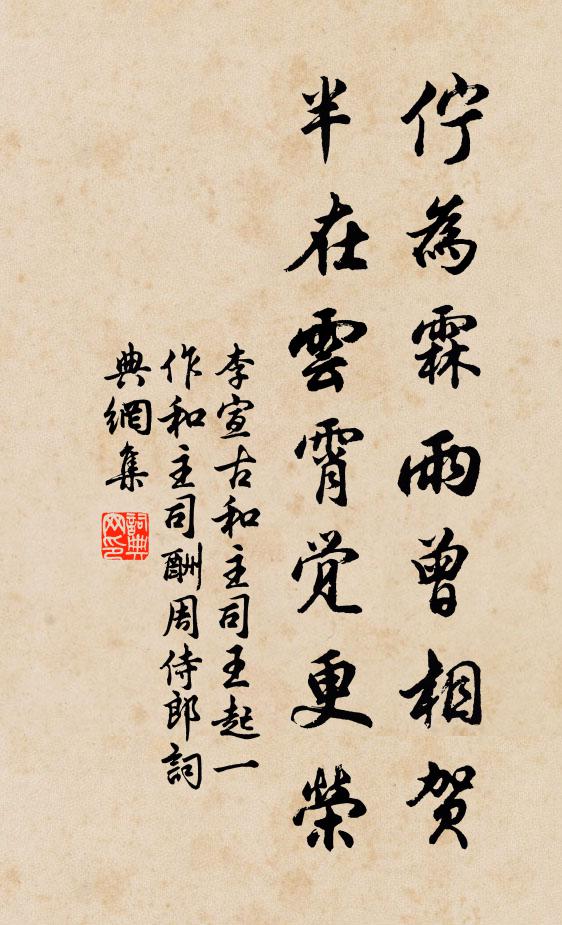 佇為霖雨曾相賀
半在雲霄覺更榮
李宣古和主司王起一
作和主司酬周侍郎詞
典網集
詞典網印